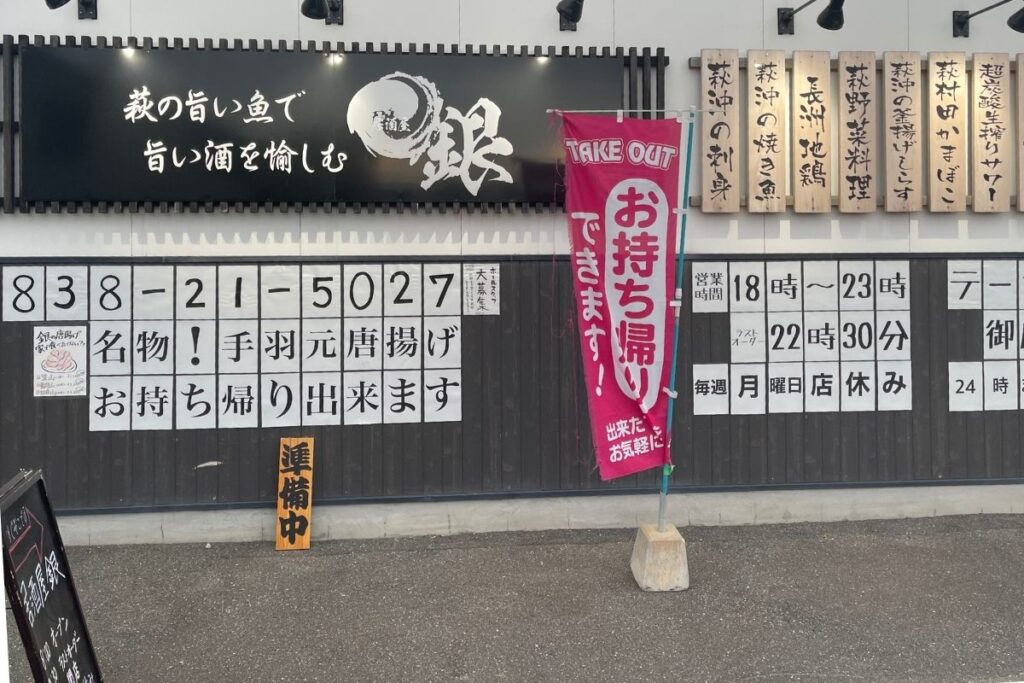 萩の旨い魚で
旨い酒を愉しむ
居酒屋
銀
萩沖の刺身
萩沖の焼き魚
長洲地鶏
萩野菜料理
萩沖の釜揚げしらす
萩村田かまぼこ
超炭酸生搾りサワー
TAKE OUT
お持ち帰り
できます!
出来た
お気軽に
838-21-5027
大募集
名物!手羽元唐揚げ
お持ち帰り出来ます
営業時間 18時〜23時
ラストオーダー 22時30分
毎週月曜日店休み
テー
御
24時
準備中
居酒屋銀
オープン
ラストオーダー
閉店